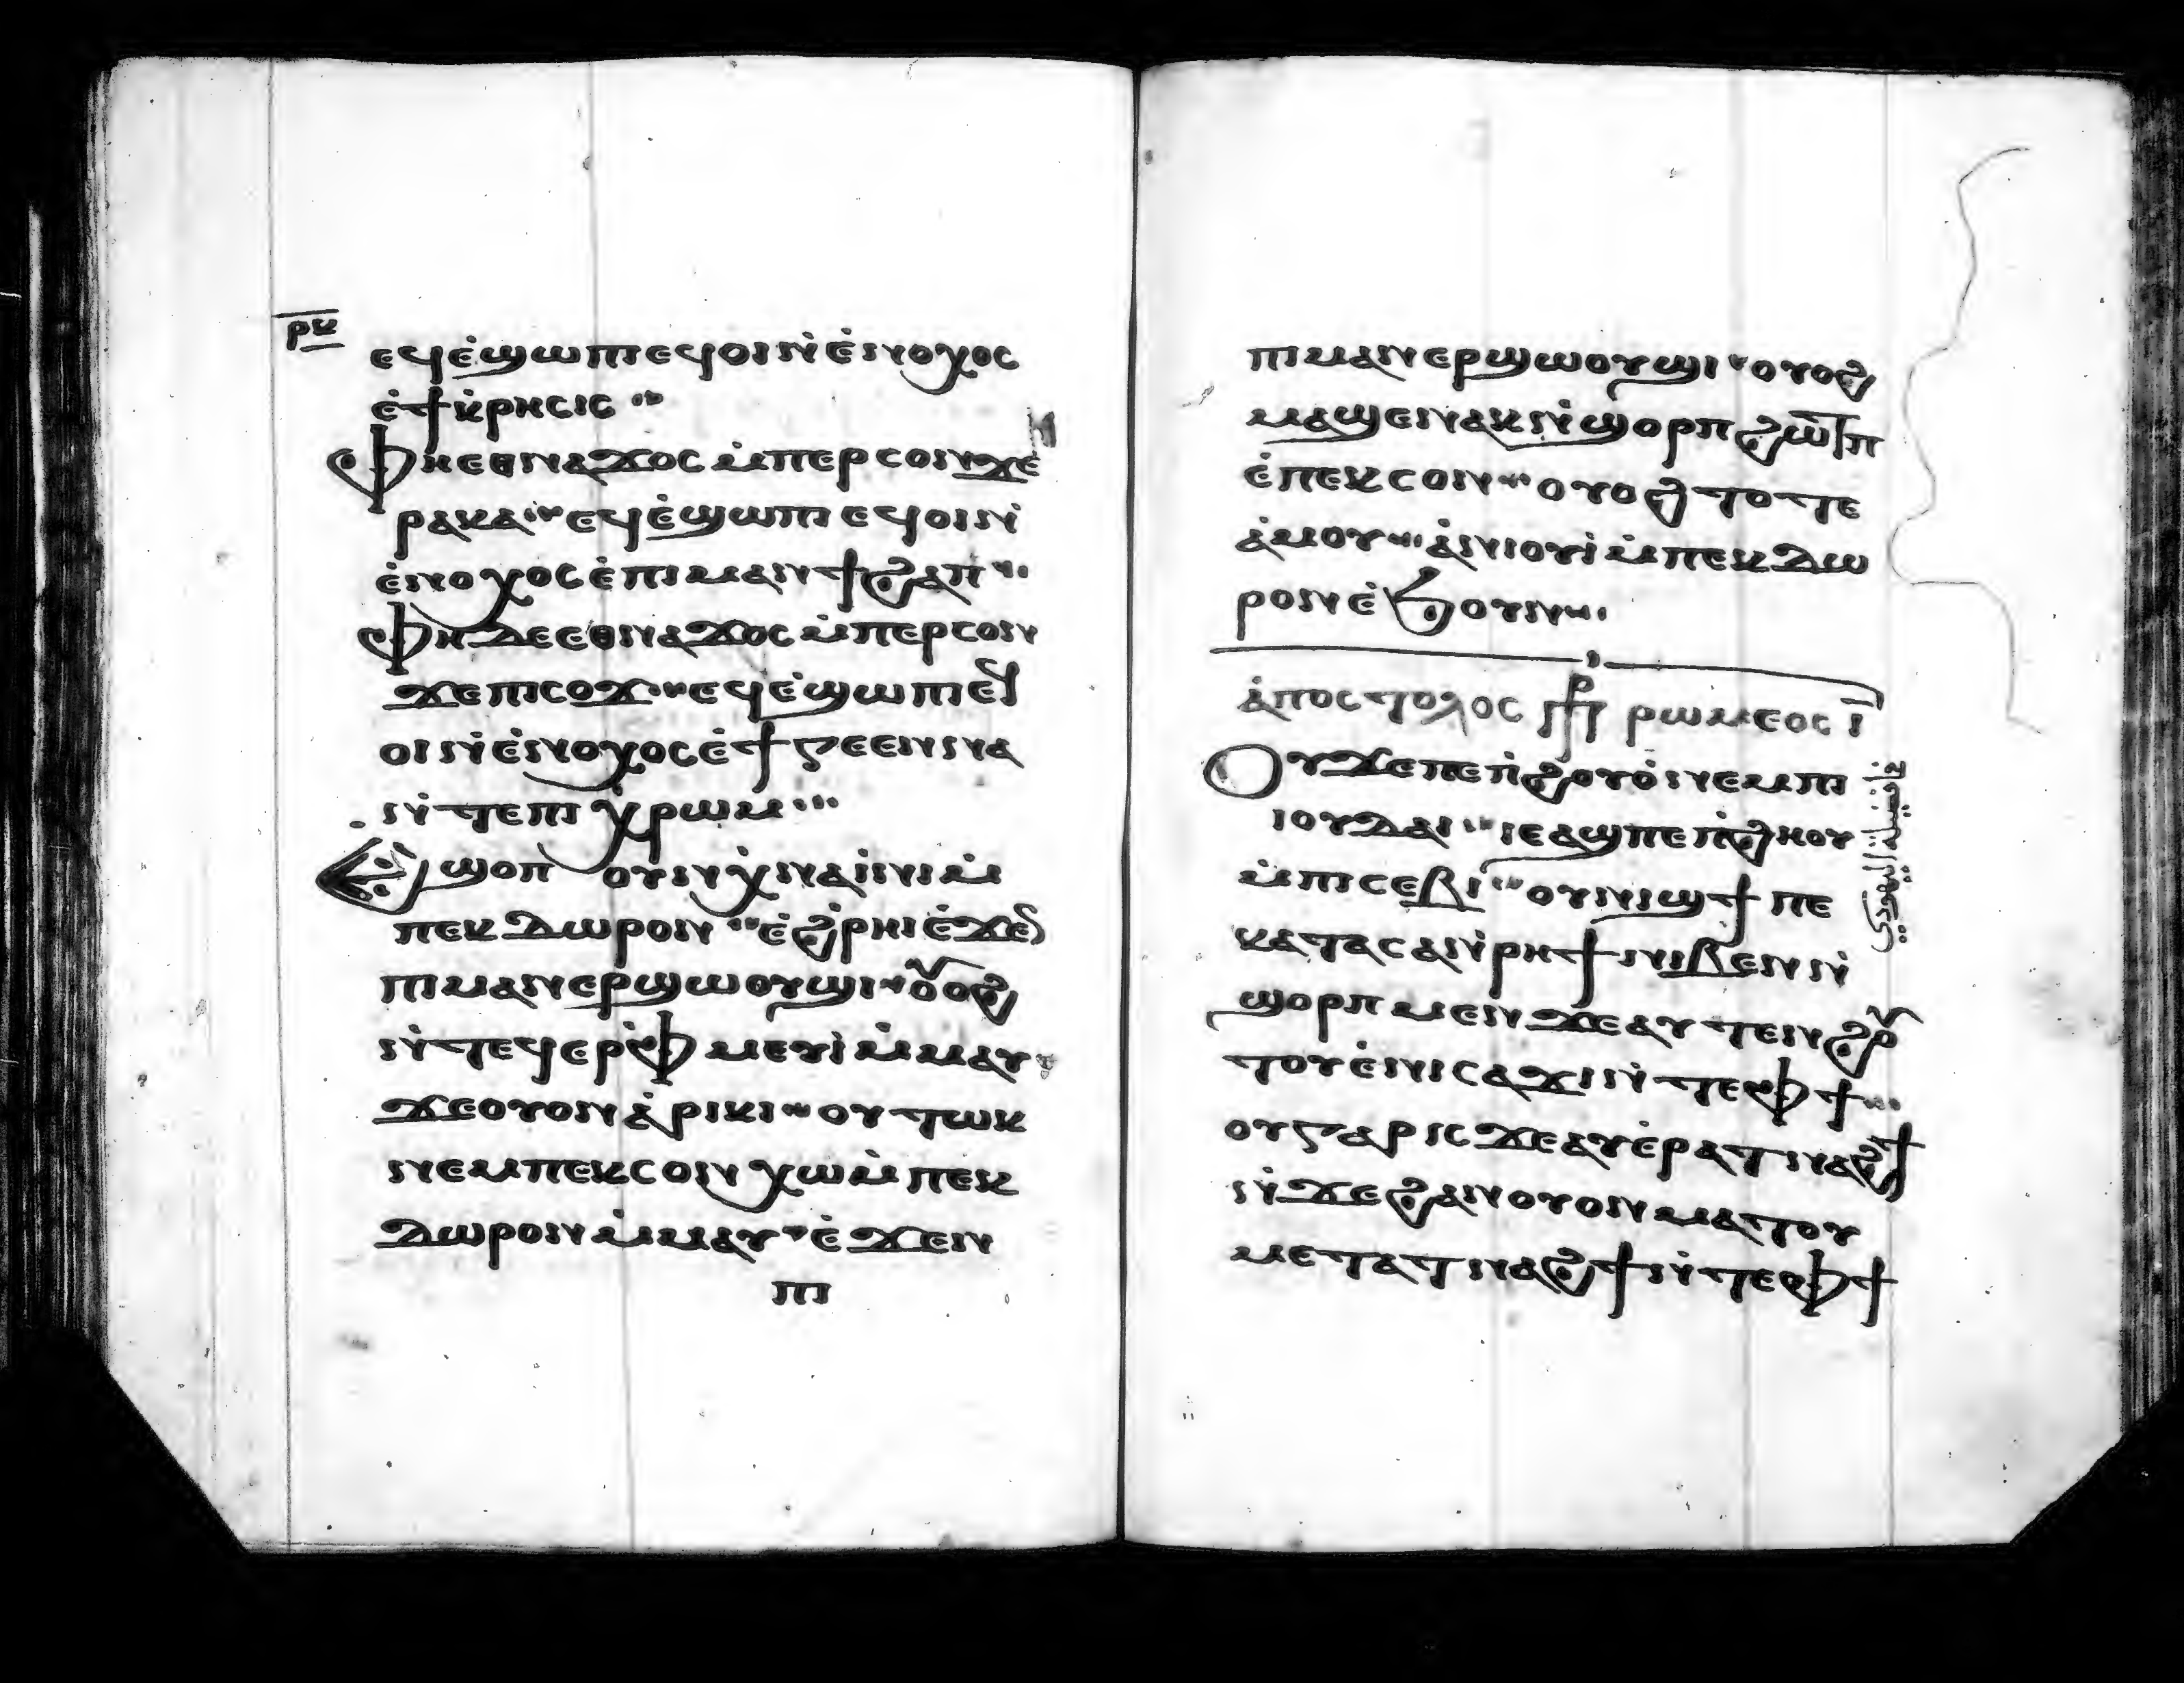 ⲣⲕ
ⲉϥⲉ̇ϣⲱⲡⲓ ⲉϥⲟⲓ ⲛ̇ⲉ̇ⲛⲟⲭⲟⲥ
ⲉ̇ϯⲕ̇ⲣⲏⲥⲓⲥ
ⲫⲏ ⲉⲑⲛⲁϫⲟⲥ ⲙ̇ⲡⲉⲣⲥⲟⲛ ϫⲉ
ⲣⲁⲕⲁ ⲉϥⲉ̇ϣⲱⲡⲓ ⲉϥⲟⲓ ⲛ̇
ⲉ̇ⲛⲟⲭⲟⲥ ⲉ̇ⲡⲓⲙⲁⲛϯϩⲁⲡ
ⲫⲏ ⲇⲉ ⲉⲑⲛⲁϫⲟⲥ ⲙ̇ⲡⲉⲣⲥⲟⲛ
ϫⲉ ⲡⲓⲥⲟϫ ⲉϥⲉ̇ϣⲱⲡⲓ ⲉϥ
ⲟⲓ ⲛ̇ⲉ̇ⲛⲟⲭⲟⲥ ⲉ̇ϯⲅⲉⲉⲛⲛⲁ
ⲛ̇ⲧⲉ ⲡⲓⲭⲣⲱⲙ
ⲉϣⲟⲡ ⲟⲩⲛ ⲭ̇ⲛⲁⲓ̇ⲛⲓ ⲙ̇
ⲡⲉⲕⲇⲱⲣⲟⲛ ⲉ̇ϩ̇ⲣⲏⲓ ⲉ̇ϫⲉⲛ
ⲡⲓⲙⲁⲛⲉⲣϣⲱⲟⲩϣⲓ ⲟⲩⲟϩ
ⲛ̇ⲧⲉϥⲉⲣⲫ̇ⲙⲉⲩⲓ̇ ⲙ̇ⲙⲁⲩ
ϫⲉ ⲟⲩⲟⲛ ⲁ̇ⲣⲓⲕⲓ ⲟⲩⲧⲱⲕ
ⲛⲉⲙ ⲡⲉⲕⲥⲟⲛ ⲭⲱ ⲙ̇ⲡⲉⲕ
ⲇⲱⲣⲟⲛ ⲙ̇ⲙⲁⲩ ⲉ̇ϫⲉⲛ
ⲡⲓ
ⲡⲓⲙⲁⲛⲉⲣϣⲱⲟⲩϣⲓ ⲟⲩⲟϩ
ⲙⲁϣⲉⲛⲁⲕ ⲛ̇ϣⲟⲣⲡ ϩⲱⲧⲡ
ⲉ̇ⲡⲉⲕⲥⲟⲛ ⲟⲩⲟϩ ⲧⲟⲧⲉ
ⲁ̇ⲙⲟⲩ ⲁ̇ⲛⲓⲟⲩⲓ̇ ⲙ̇ⲡⲉⲕⲇⲱ
ⲣⲟⲛ ⲉ̇ϧⲟⲩⲛ
ⲁ̇ⲡⲟⲥⲧⲟⲗⲟⲥ ⲡⲣ ⲣⲱⲙⲉⲟⲥ ⲓ̅
ⲟⲩ ϫⲉ ⲡⲉ ⲡ̇ϩⲟⲩⲟ̇ ⲛⲉⲙ ⲡⲓ
ⲓⲟⲩⲇⲁⲓ ⲓⲉ ⲁϣ ⲡⲉ ⲡ̇ϩⲏⲟⲩ
ⲙ̇ⲡⲓⲥⲉⲃⲓ ⲟⲩⲛⲓϣϯ ⲡⲉ
ⲕⲁⲧⲁ ⲥⲁⲛ̇ⲣⲏϯ ⲛⲓⲃⲉⲛ ⲛ̇
ϣⲟⲣⲡ ⲙⲉⲛ ϫⲉ ⲁⲩⲧⲉⲛϩⲟⲩ
ⲧⲟⲩ ⲉ̇ⲛⲓⲥⲁϫⲓ ⲛ̇ⲧⲉ ⲫϯ
ⲟⲩ ⲅⲁⲣ ⲓⲥϫⲉ ⲁⲩⲉ̇ⲣⲁⲧⲛⲁϩϯ
ⲛ̇ϫⲉ ϩⲁⲛⲟⲩⲟⲛ ⲙⲁ ⲧⲟⲩ
ⲙⲉⲧⲁⲧⲛⲁϩϯ ⲛ̇ⲧⲉ ⲫϯ